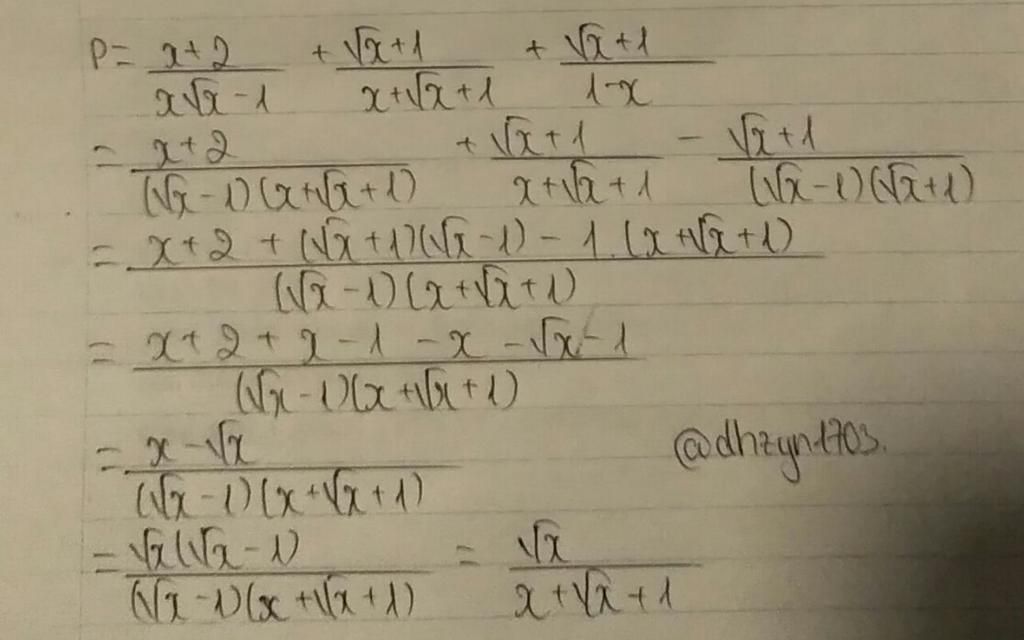 P = \frac{x+2}{x\sqrt{x}-1} + \frac{\sqrt{x}+1}{x+\sqrt{x}+1} + \frac{\sqrt{x}+1}{1-x}
= \frac{x+2}{(\sqrt{x}-1)(x+\sqrt{x}+1)} + \frac{\sqrt{x}+1}{x+\sqrt{x}+1} - \frac{\sqrt{x}+1}{(\sqrt{x}-1)(\sqrt{x}+1)}
= \frac{x+2+(\sqrt{x}+1)(\sqrt{x}-1)-1.(x+\sqrt{x}+1)}{(\sqrt{x}-1)(x+\sqrt{x}+1)}
= \frac{x+2+x-1-x-\sqrt{x}-1}{(\sqrt{x}-1)(x+\sqrt{x}+1)}
= \frac{x-\sqrt{x}}{(\sqrt{x}-1)(x+\sqrt{x}+1)}
@dhzyn1703.
= \frac{\sqrt{x}(\sqrt{x}-1)}{(\sqrt{x}-1)(x+\sqrt{x}+1)} = \frac{\sqrt{x}}{x+\sqrt{x}+1}